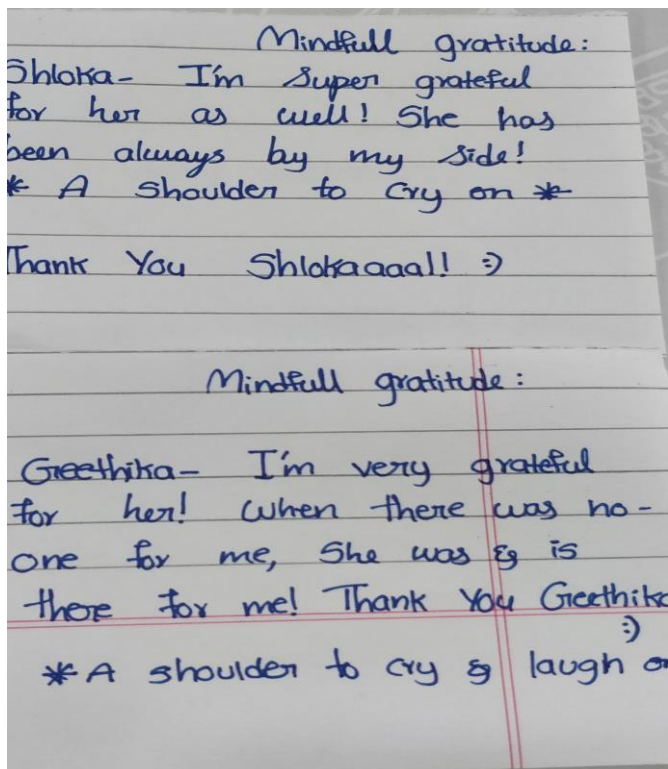 Mindfull gratitude:
Shloka- I'm super grateful
for her as well! She has
been always by my side!
* A shoulder to cry on *
Thank You Shlokaaaa!! :)
Mindfull gratitude:
Greethika- I'm very grateful
for her! When there was no-
one for me, She was & is
there for me! Thank You Greethika
:)
*A shoulder to cry & laugh on